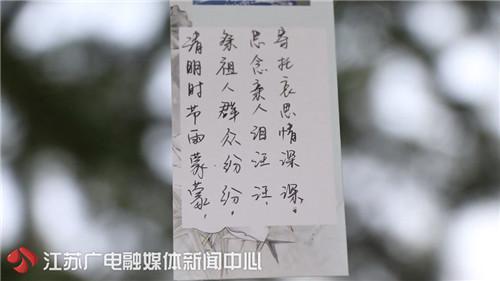 清明时节雨蒙蒙，
祭祖人群众纷纷，
思念亲人泪汪汪，
寄托哀思情深深。
江苏广电融媒体新闻中心